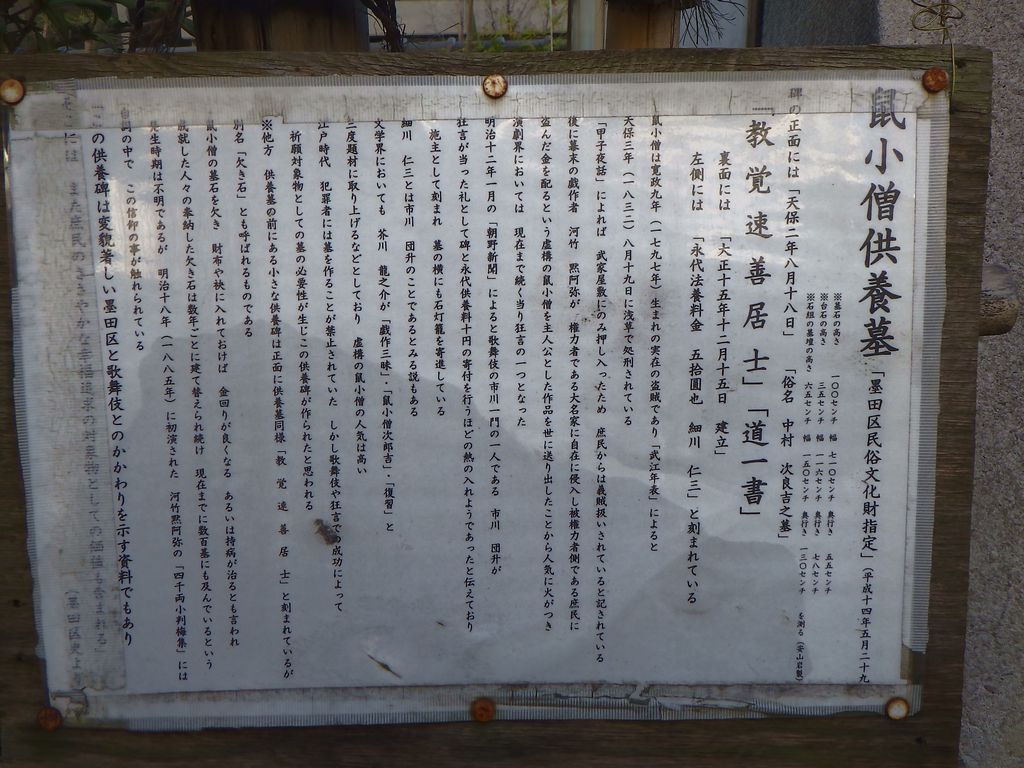 鼠小僧供養墓 「墨田区民俗文化財指定」(平成十四年五月二十九
※墓石の高さ 一〇〇センチ 幅 七一〇センチ 奥行き 五五センチ
※台石の高さ 三五センチ 幅 一一六センチ 奥行き 七八センチ
※石組の墓壇の高さ 六五センチ 幅 一五〇センチ 奥行き 一三〇センチ を測る (安山岩製)
碑の正面には「天保二年八月十八日」 「俗名 中村 次良吉之墓」
「教覚速善居士」「道一書」
裏面には 「大正十五年十二月十五日 建立」
左側には 「永代法養料金 五拾圓也 細川 仁三」と刻まれている
鼠小僧は寛政九年(一七九七年)生まれの実在の盗賊であり「武江年表」によると
天保三年(一八三二)八月十九日に浅草で処刑されている
「甲子夜話」によれば 武家屋敷にのみ押し入ったため 庶民からは義賊扱いされていると記されている
後に幕末の戯作者 河竹 黙阿弥が、権力者である大名家に自在に侵入し被権力者側である庶民に
盗んだ金を配るという虚構の鼠小僧を主人公とした作品を世に送り出したことから人気に火がつき
演劇界においては 現在まで続く当り狂言の一つとなった
明治十二年一月の「朝野新聞」によると歌舞伎の市川一門の一人である 市川 団升が
狂言が当った礼として碑と永代供養料十円の寄付を行うほどの熱の入れようであったと伝えており
施主として刻まれ 墓の横にも石灯籠を寄進している
細川 仁三とは市川 団升のことであるとみる説もある
文学界においても 芥川 龍之介が「戯作三昧」・「鼠小僧次郎吉」・「復習」と
三度題材に取り上げるなどとしており 虚構の鼠小僧の人気は高い
江戸時代 犯罪者には墓を作ることが禁止されていた しかし歌舞伎や狂言での成功によって
祈願対象物としての墓の必要性が生じこの供養碑が作られたと思われる
※他方 供養墓の前にある小さな供養碑は正面に供養墓同様「教 覚 速 善 居 士」と刻まれているが
別名「欠き石」とも呼ばれるものである
鼠小僧の墓石を欠き 財布や袂に入れておけば 金回りが良くなる あるいは持病が治るとも言われ
成就した人々の奉納した欠き石は数年ごとに建て替えられ続け 現在までに数百基にも及んでいるという
発生時期は不明であるが 明治十八年(一八八五年)に初演された 河竹黙阿弥の「四千両小判梅集」には
台詞の中で この信仰の事が触れられている
「この供養碑は変貌著しい墨田区と歌舞伎とのかかわりを示す資料でもあり
そこには また庶民のささやかな幸福追求の対象物としての価値も含まれる」
(墨田区史より